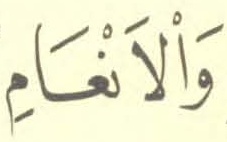 وَاْلاَنْعَامِ